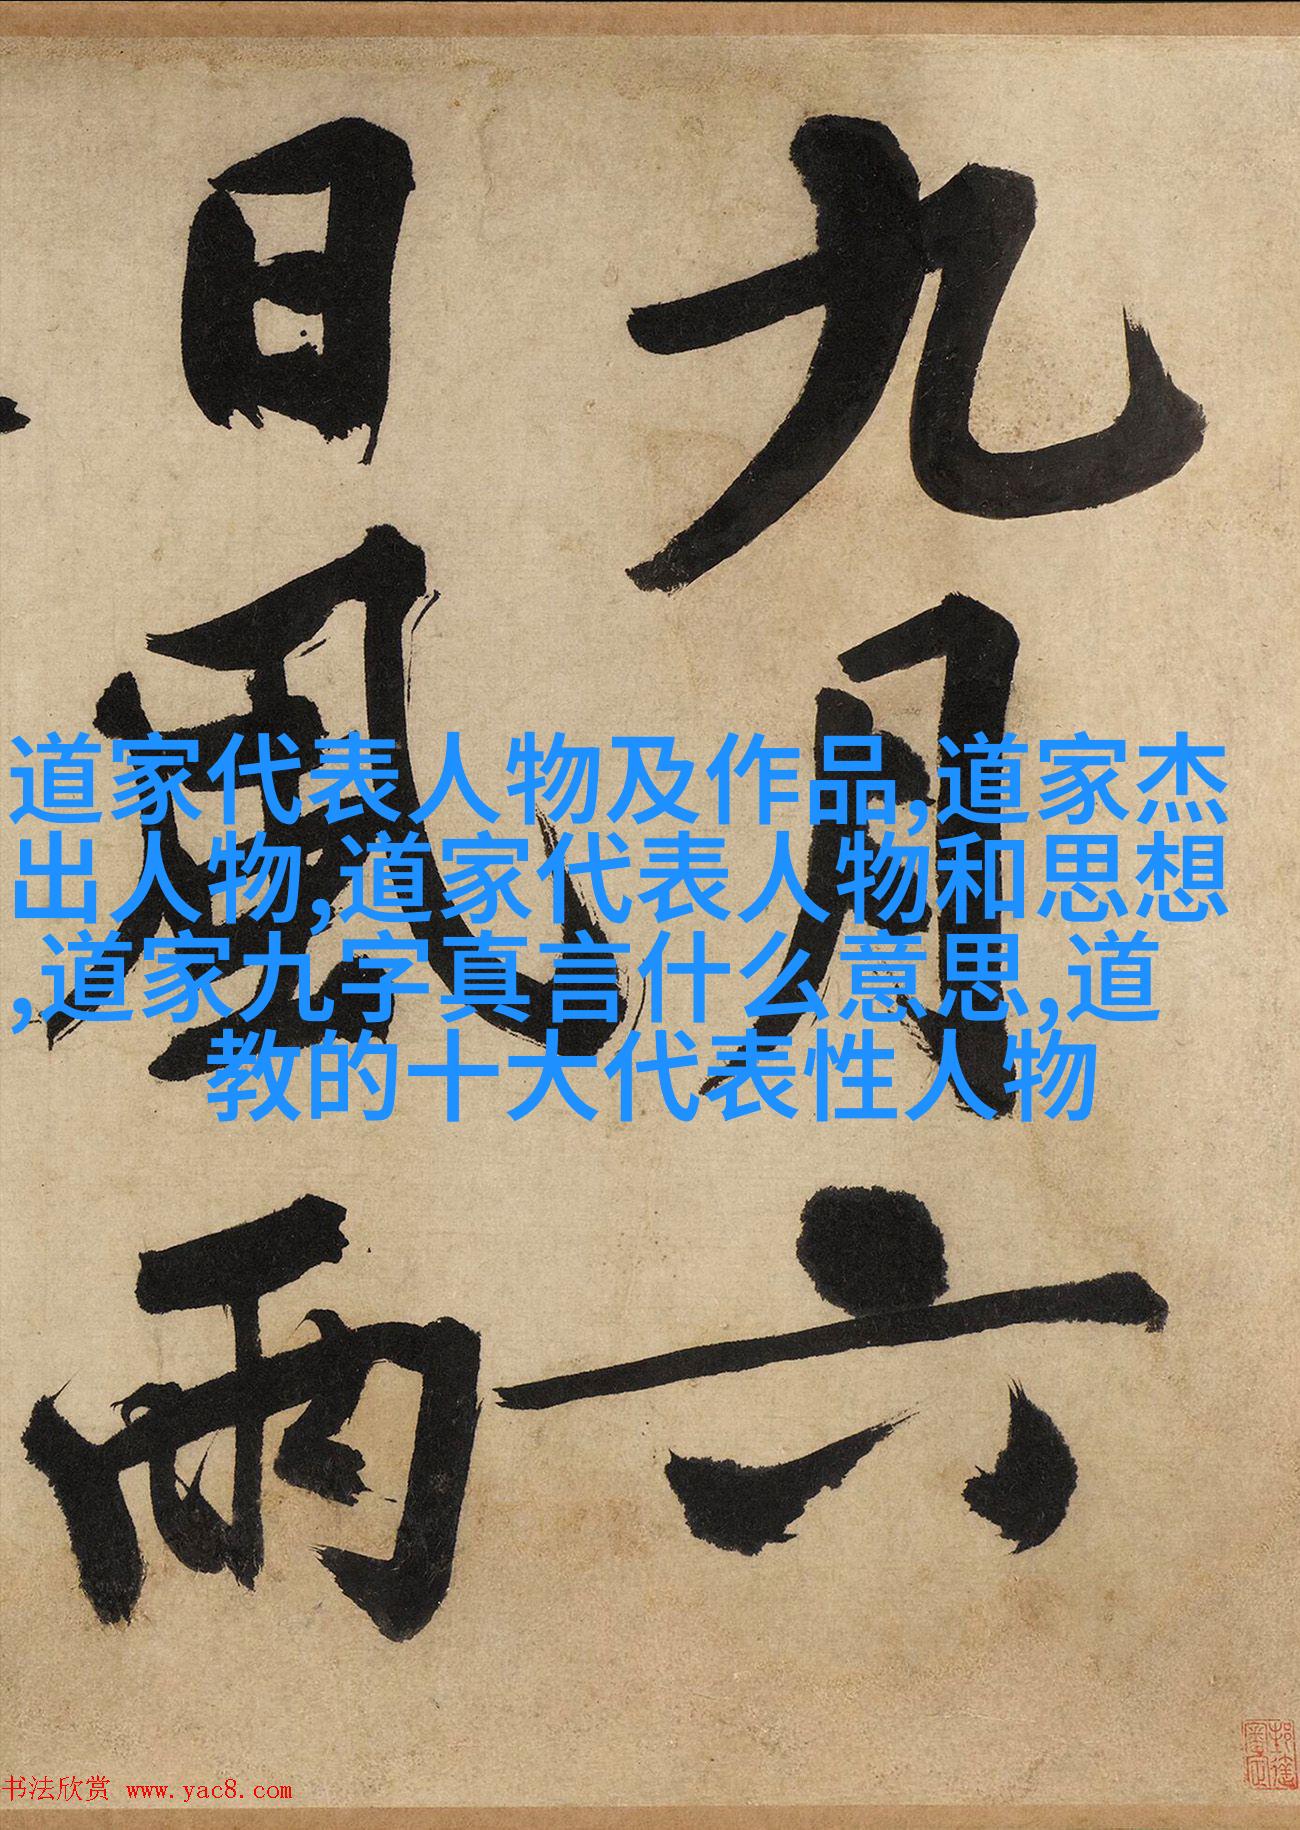 九月六
日風雨
道家代表人物及作品,道家杰
出人物,道家代表人物和思想
,道家九字真言什么意思,道
教的十大代表性人物
书法欣赏 www.yac8.com